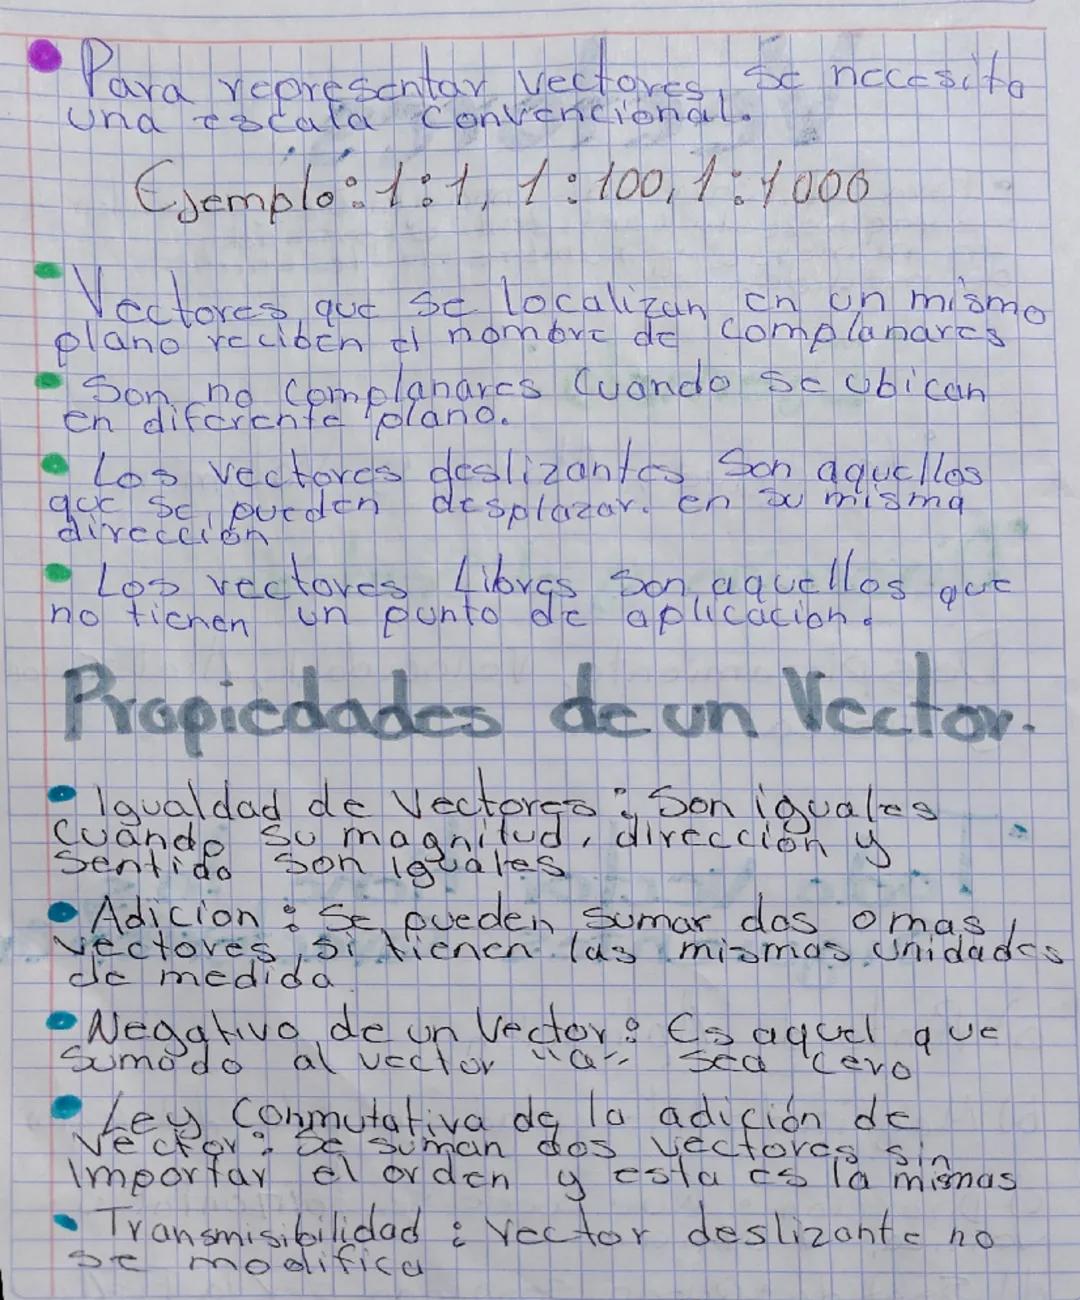 Para representar vectores, se necesita
una escala convencional.
Ejemplo: 1:1, 1:100, 1:1000
Vectores que se localizan en un mismo
plano reciben el nombre de complanares
Son no complanares cuando se ubican
en diferente plano.
Los vectores deslizantes son aquellos
que se pueden desplazar en su misma
dirección
Los vectores Libres son aquellos que
no tienen un punto de aplicación.
Propiedades de un Vector.
Igualdad de Vectores: Son iguales
cuando su magnitud, dirección y
sentido son iguales
Adición: Se pueden sumar dos o mas
vectores, si tienen las mismas unidades
de medida
Negativo de un Vector: Es aquel que
sumado al vector "a" sea cero
Ley Conmutativa de la adición de
vector: Se suman dos vectores sin
importar el orden y esta es la mismas
Transmisibilidad: vector deslizante no
se modifica